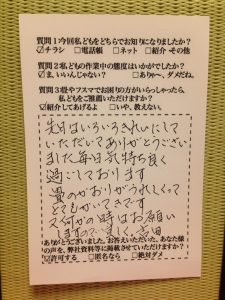 質問1:今回私どもをどちらでお知りになりましたか?
☑チラシ □電話帳 □ネット □紹介 その他
質問2:私どもの作業中の態度はいかがでしたか?
☑ま、いいんじゃない? □ありゃ〜、ダメだね。
質問3:畳やフスマでお困りの方がいらっしゃったら、
私どもをご推薦いただけますか?
☑紹介してあげるよ □いや、教えない。
先日はいろいろきれいにして
いただいてありがとうござい
ました毎日気持ち良く
過ごしております
畳のかおりがうれしくって
とても
又何かの時はお願い
しますので宜しく
ありがとうございました。お答えいただいた、あなた様
の声を、弊社資料等に掲載させていただけますか?
☑許可する □匿名なら □絶対ダメ